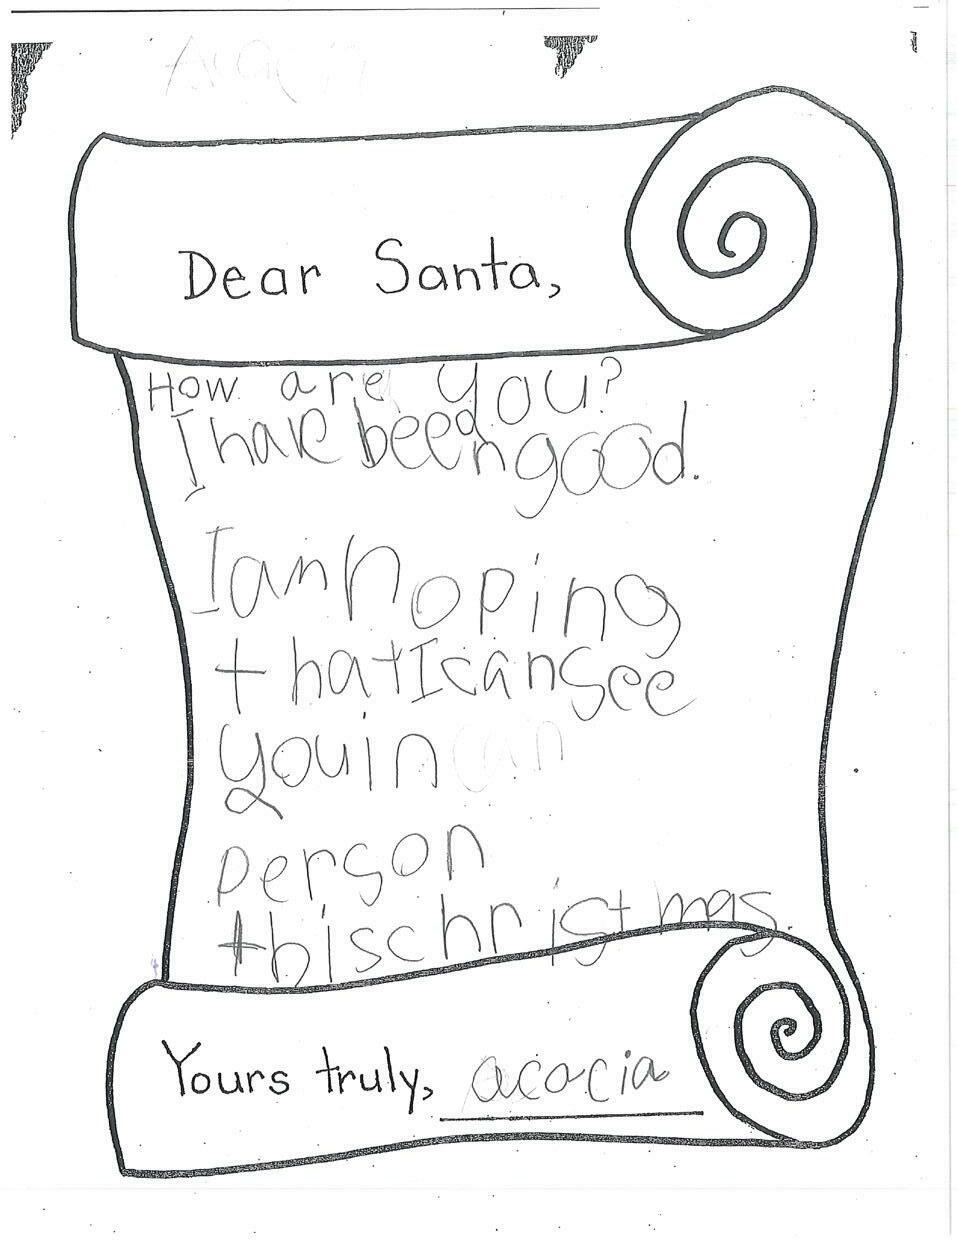 Dear Santa,
How are you?
I have been good.
I am hoping
that I can see
you in
person
this christmas.
Yours truly, acacia